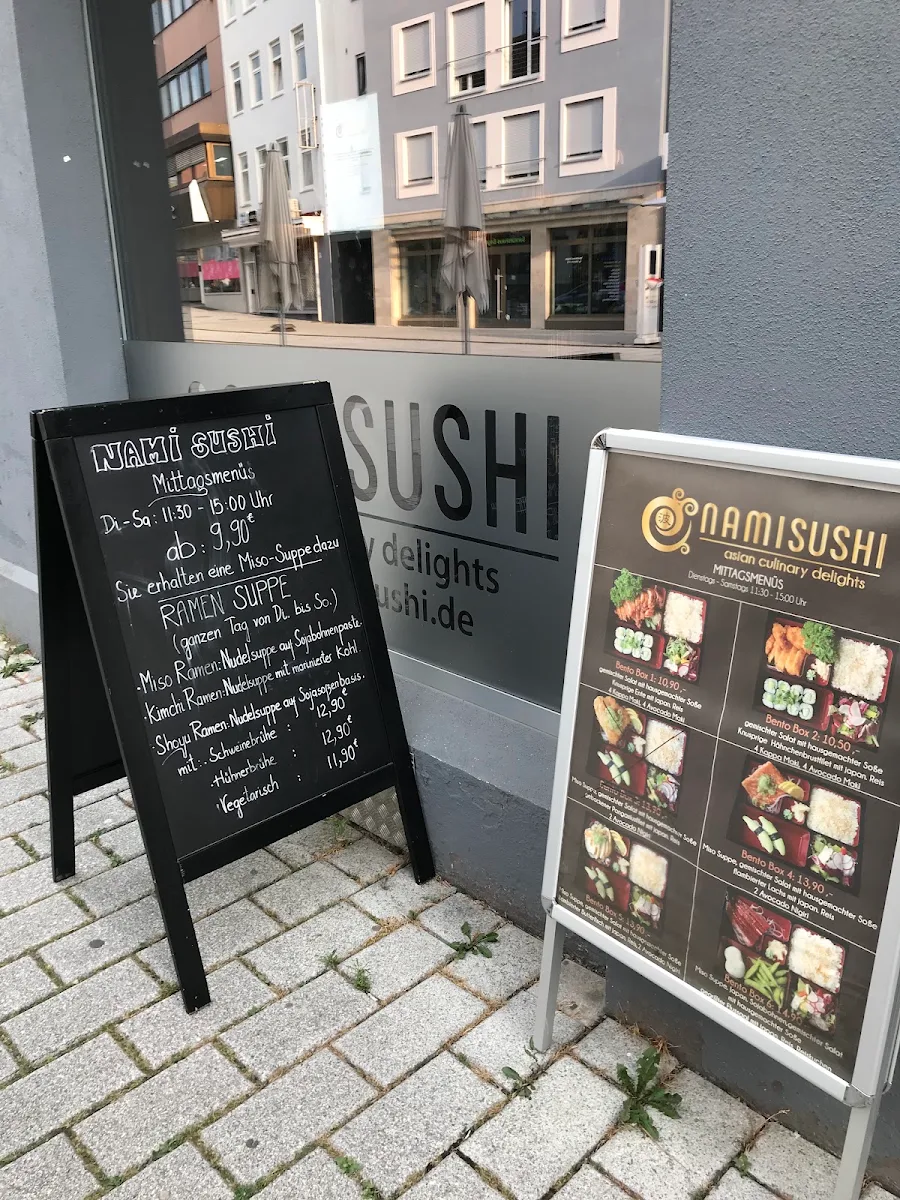 NAMI SUSHI
Mittagsmenüs
Di-Sa: 11:30 - 15:00 Uhr
ab: 9,90€
Sie erhalten eine Miso-Suppe dazu
RAMEN SUPPE
(ganzen Tag von Di. bis So.)
·Miso Ramen: Nudelsuppe auf Sojabohnenpaste
·Kimchi Ramen: Nudelsuppe mit marinierter Kohl.
·Shoyu Ramen: Nudelsuppe auf Sojasoßenbasis.
mit: · Schweinebrühe : 12,90€
·Hühnerbrühe : 12,90€
·Vegetarisch : 11,90€
SUSHI
y delights
ushi.de
NAMISUSHI
asian culinary delights
MITTAGSMENÜS
Dienstags - Samstags 11:30 - 15:00 Uhr
Bento Box 1: 10,90,-
gemischter Salat mit hausgemachter Soße
Knusprige Ente mit Japan. Reis
4 Kappa Maki, 4 Avocado Maki
Bento Box 2: 10,50,-
gemischter Salat mit hausgemachter Soße
Knusprige Hähnchenbrustfilet mit Japan. Reis
4 Kappa Maki, 4 Avocado Maki
Bento Box
Miso Suppe, gemischter Salat mit hausgemachter Soße
gebackener Pangasiusfilet mit Japan. Reis
2 Avocado Nigiri
Bento Box 4: 13,90,-
Miso Suppe, gemischter Salat mit hausgemachter Soße
flambierter Lachs mit Japan. Reis
2 Avocado Nigiri
Bento Box 5: 13,90,-
Miso Suppe, gemischter Salat mit hausgemachter Soße
flambierter Butterfisch mit Japan. Reis, 2 Avocado Nigiri
Bento Box 6:
Miso Suppe, Japan. Sojabohnen, gemischter Salat
mit hausgemachter Soße
mit Japan. Reis,